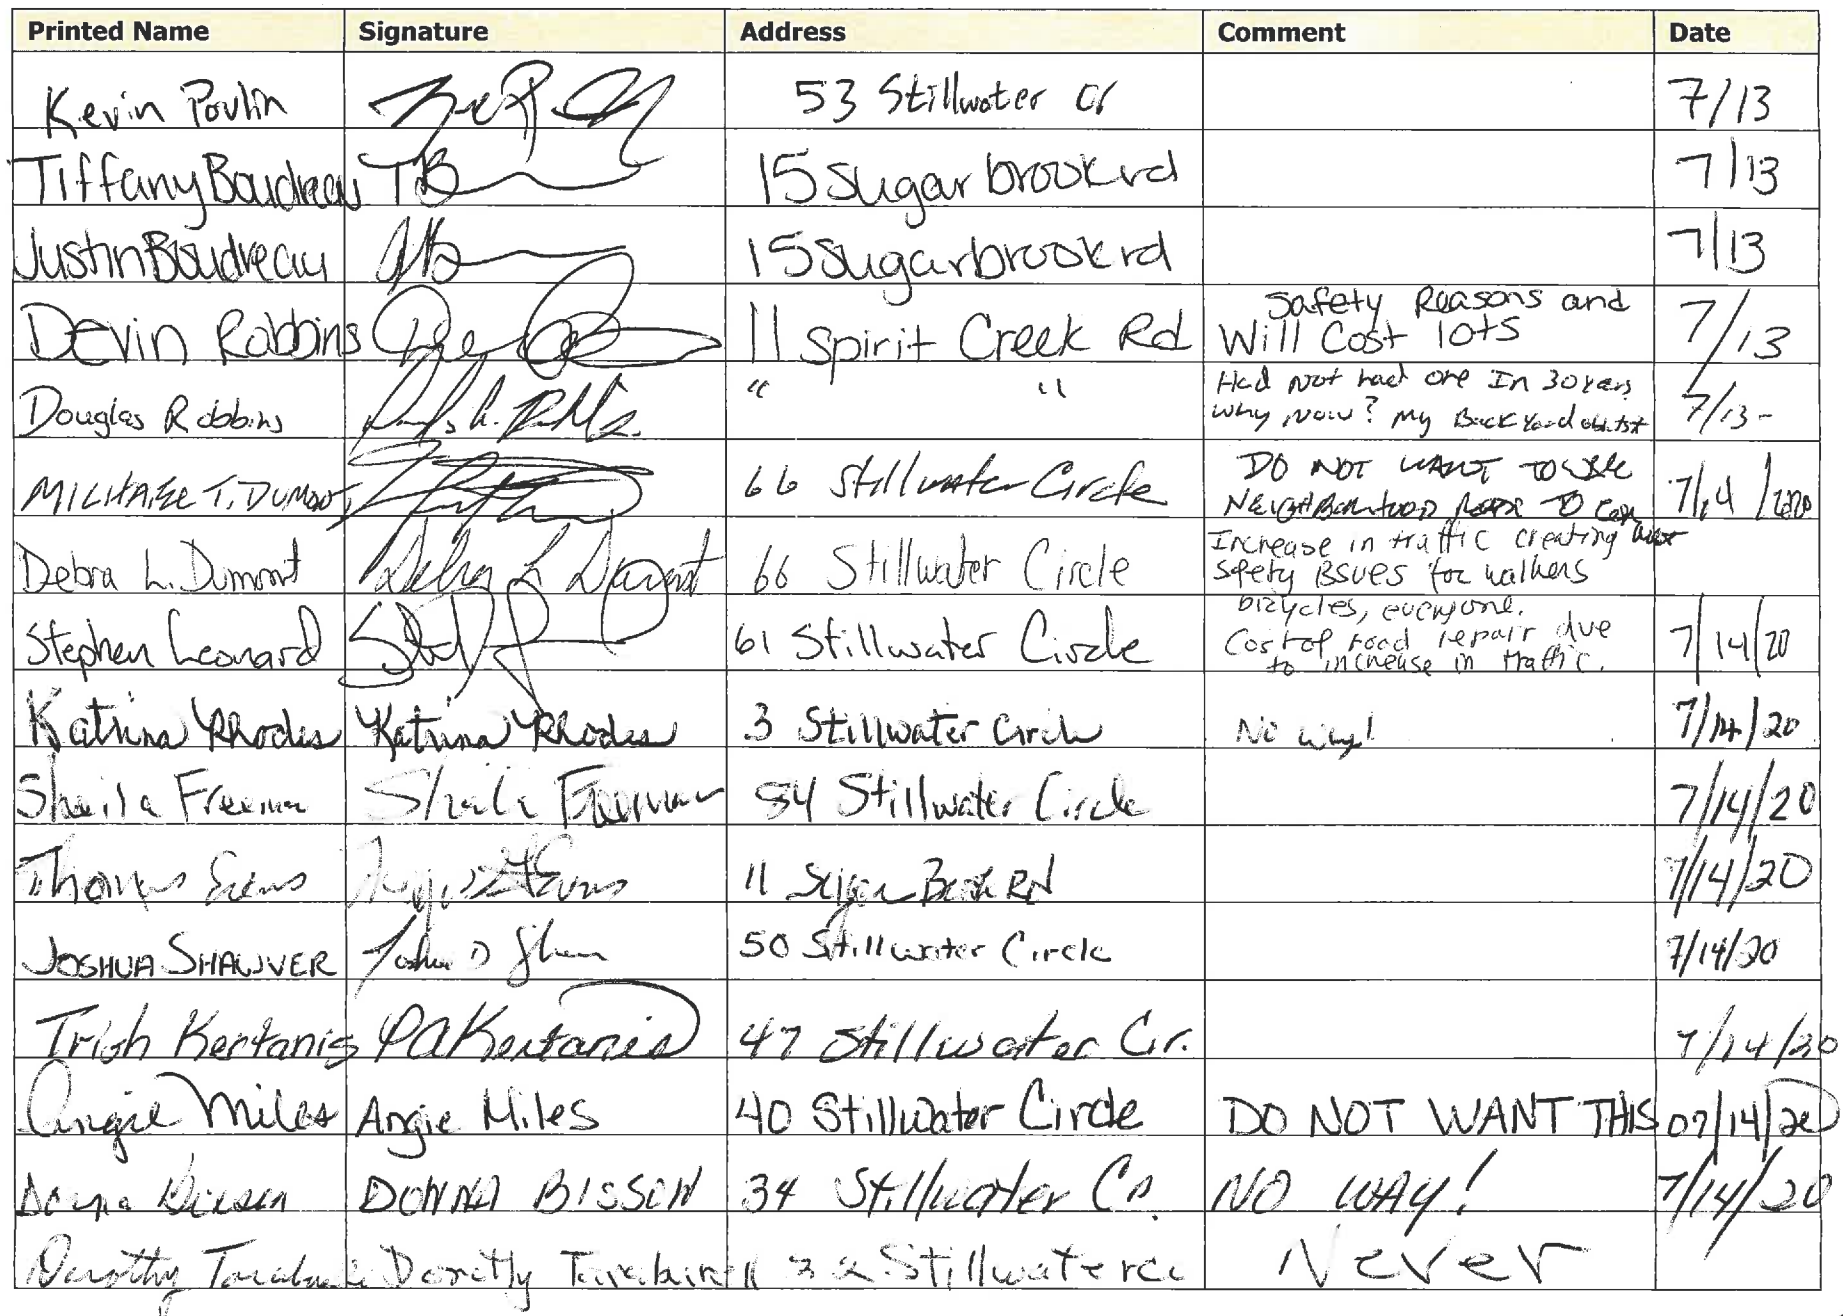 Printed Name Signature Address Comment Date
Kevin Poulin 53 Stillwater Cir 7/13
Tiffany Boudreau TB 15 Sugarbrook rd 7/13
Justin Boudreau 15 Sugarbrook rd 7/13
Devin Robbins 11 Spirit Creek Rd Safety Reasons and
Will Cost lots 7/13
Douglas Robbins " " Had Not had one In 30 years
Why Now? My Back Yard 7/13
MICHAEL T. DUMONT 66 Stillwater Circle DO NOT WANT TO
NEIGHBORHOOD TO 7/14/2020
Debra L. Dumont Debra L Dumont 66 Stillwater Circle Increase in traffic creating
safety issues for walkers
bicycles, everyone.
Stephen Leonard 61 Stillwater Circle Cost of road repair due
to increase in traffic. 7/14/20
Katrina Rhodes Katrina Rhodes 3 Stillwater Circle No way! 7/14/20
Sheila Freeman Sheila Freeman 54 Stillwater Circle 7/14/20
Thomas 11 Sugar Brook Rd 7/14/20
JOSHUA SHAWVER Joshua D 50 Stillwater Circle 7/14/20
Trish Kertanis PAKertanis 47 Stillwater Cir. 7/14/20
Angie Miles Angie Miles 40 Stillwater Circle DO NOT WANT THIS 07/14/20
Donna Bisson DONNA BISSON 34 Stillwater Cir. NO WAY! 7/14/20
Dorothy Dorothy Stillwater Never